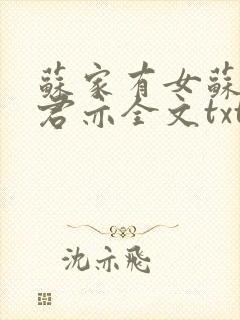 蘇家有女蘇
君亦全文txt
沈亦飛